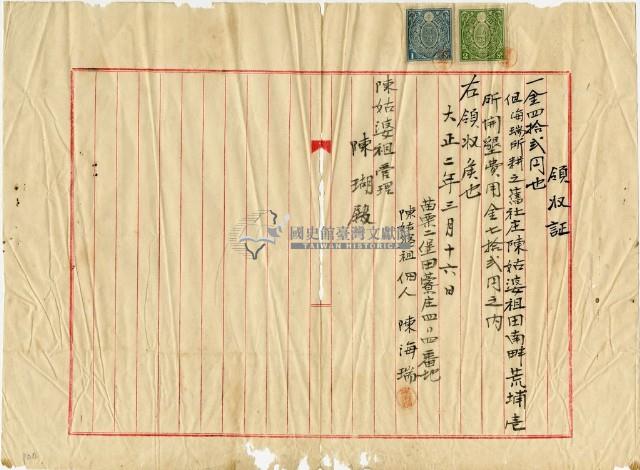 領収証
一金四拾弐円也
但海瑞所耕之舊社庄陳姑婆祖田南畔荒埔壱
所開墾費用金七拾弐円之内
右領収候也
大正二年三月十六日
苗栗二堡田藔庄四〇四番地
陳姑婆祖佃人 陳海瑞
陳姑婆祖管理
陳瑚殿
國史館臺灣文獻館
TAIWAN HISTORICA